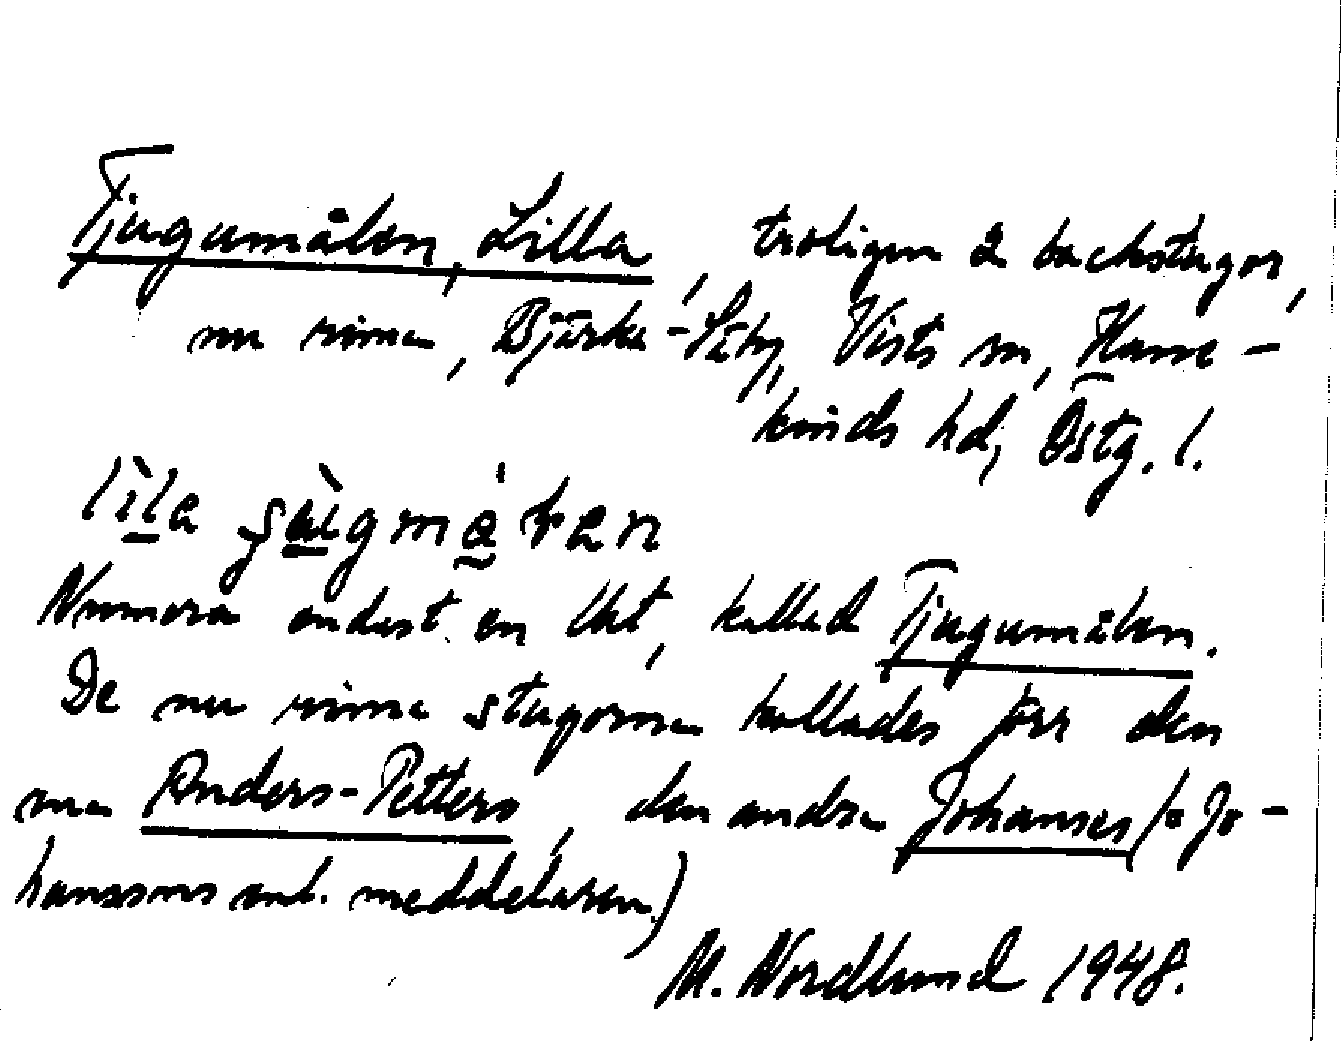 Tjugumålen, Lilla, troligen 2 backstugor,
nu rivna, Bjärka-Säby, Vists sn, Hane-
kinds hd, Östg. l.
Numera endast en tht, kallad Tjugumålen.
De nu rivna stugorna kallades förr den
ena Anders-Petters, den andra Johanses (= Jo-
hanssons enl. meddelaren)
M. Nordlund 1948.